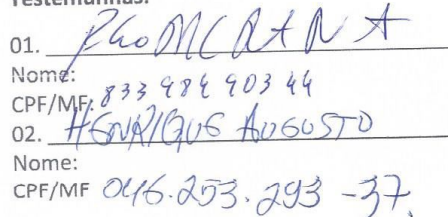 Testemunhas:
01.
Nome:
CPF/MF: 833 984 903 44
02. HENRIQUE AUGUSTO
Nome:
CPF/MF 046.253.293-37